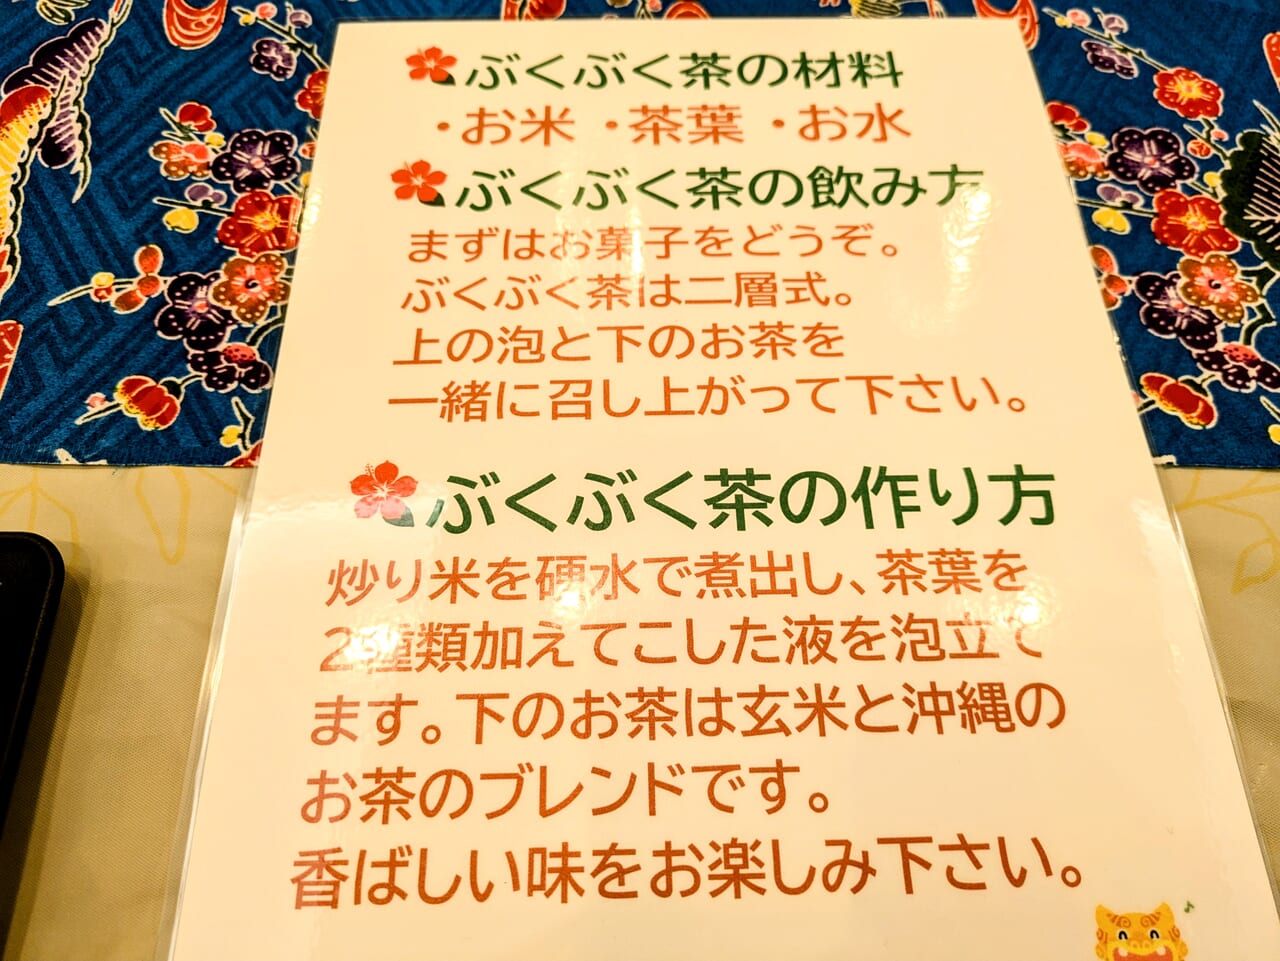 ぶくぶく茶の材料
・お米 ・茶葉 ・お水
ぶくぶく茶の飲み方
まずはお菓子をどうぞ。
ぶくぶく茶は二層式。
上の泡と下のお茶を
一緒に召し上がって下さい。
ぶくぶく茶の作り方
炒り米を硬水で煮出し、茶葉を
2種類加えてこした液を泡立て
ます。下のお茶は玄米と沖縄の
お茶のブレンドです。
香ばしい味をお楽しみ下さい。